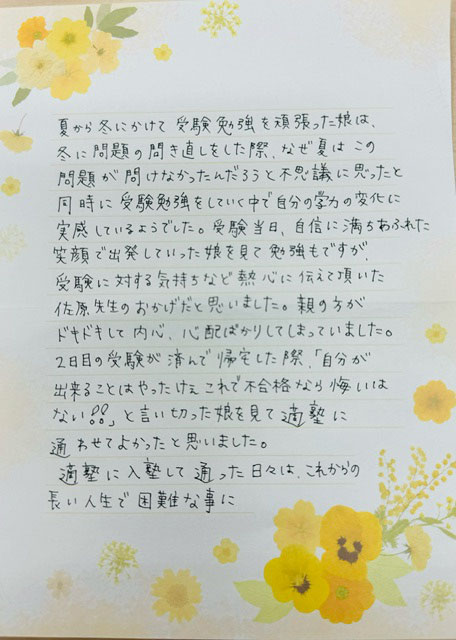 夏から冬にかけて受験勉強を頑張った娘は、
冬に問題の問き直しをした際、なぜ夏はこの
問題が問けなかったんだろうと不思議に思ったと
同時に受験勉強をしていく中で自分の学力の変化に
実感しているようでした。受験当日、自信に満ちあふれた
笑顔で出発していった娘を見て勉強もですが、
受験に対する気持ちなど熱心に伝えて頂いた
佐原先生のおかげだと思いました。親の方が
ドキドキして内心、心配ばかりしてしまっていました。
2日目の受験が済んで帰宅した際、「自分が
出来ることはやったけぇこれで不合格なら悔いは
ない!!」と言い切った娘を見て適塾に
通わせてよかったと思いました。
適塾に入塾して通った日々は、これからの
長い人生で困難な事に